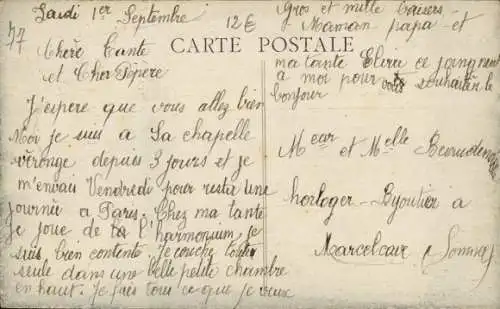 Jeudi 1er Septembre
12€
77
CARTE POSTALE
Chère Tante
et Cher Pepere
J'espere que vous allez bien
Moi je suis à La chapelle
véronge depuis 3 jours et je
m'envais Vendredi pour resta une
journée a Paris. Chez ma tante
je joue de la l'harmonium, je
suis bien contente. Je couche toute
seule dans une belle petite chambre
en haut. Je fais tous ce que je veux
Gros et mille baisers
Maman papa et
ma tante Elira ce joingnent
à moi pour vous souhaiter le
bonjour
Meur et Melle
horloger-Bijoutier a
Marcelcave (Somme)